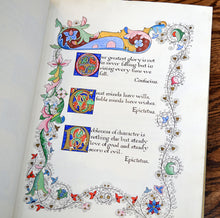 Our greatest glory is not
in never falling but in
rising every time we
fall.
Confucius.
Great minds have wills,
feeble minds have wishes.
Epictetus.
Nobleness of character is
nothing else but steady
love of good and steady
scorn of evil.
Epictetus.